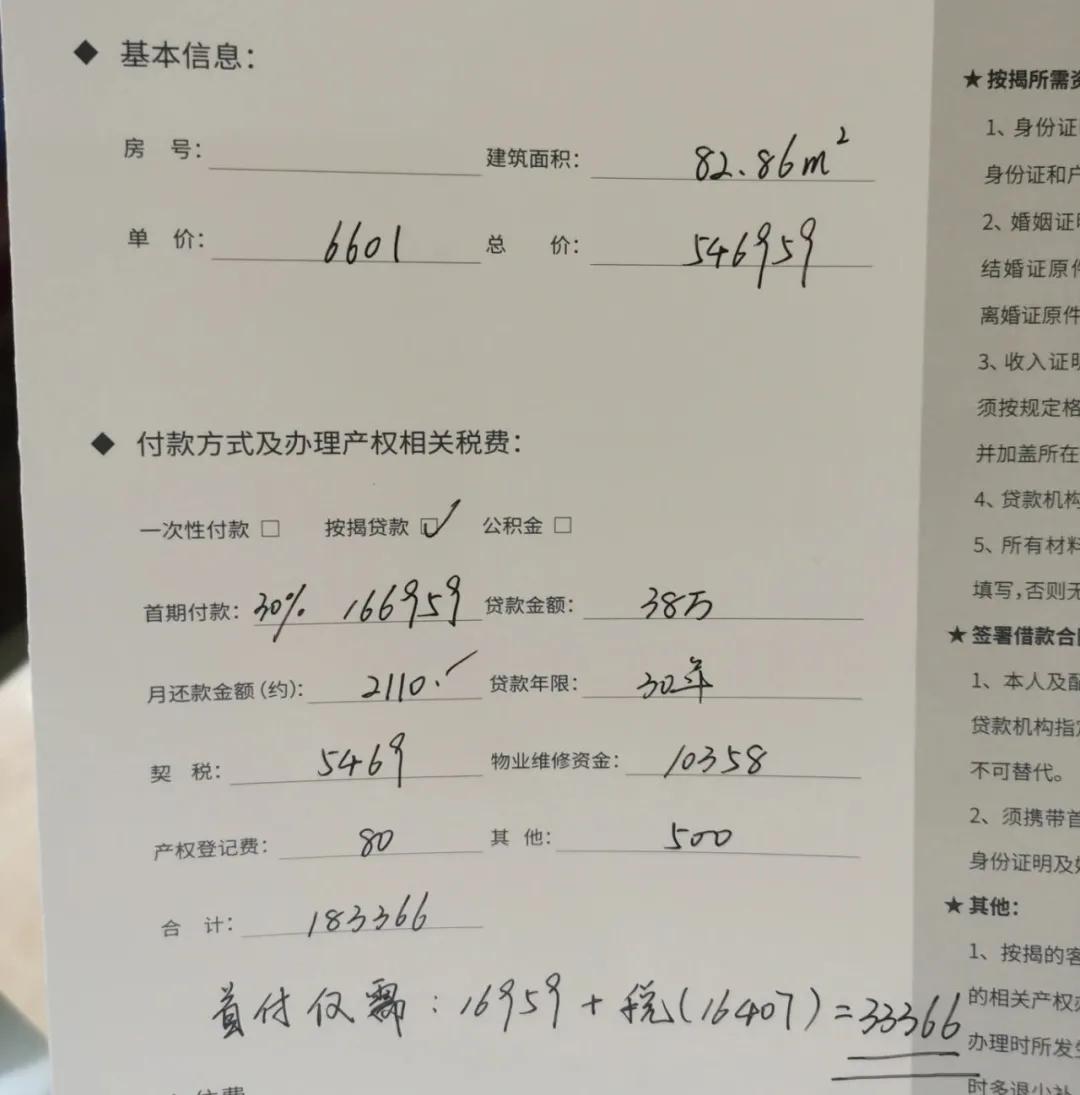 ◆ 基本信息：
房 号：
建筑面积： 82.86m²
单 价： 6601
总 价： 546959
◆ 付款方式及办理产权相关税费：
一次性付款 □ 按揭贷款 ☑ 公积金 □
首期付款： 30% 166959
贷款金额： 38万
月还款金额（约）： 2110.
贷款年限： 30年
契 税： 5469
物业维修资金： 10358
产权登记费： 80
其 他： 500
合 计： 183366
首付仅需：16959 + 税(16407) = 33366
★ 按揭所需资
1、身份证
身份证和户
2、婚姻证明
结婚证原件
离婚证原件
3、收入证明
须按规定格
并加盖所在
4、贷款机构
5、所有材料
填写，否则无
★ 签署借款合同
1、本人及配
贷款机构指定
不可替代。
2、须携带首
身份证明及
★ 其他：
1、按揭的客
的相关产权
办理时所发生
时多退少补